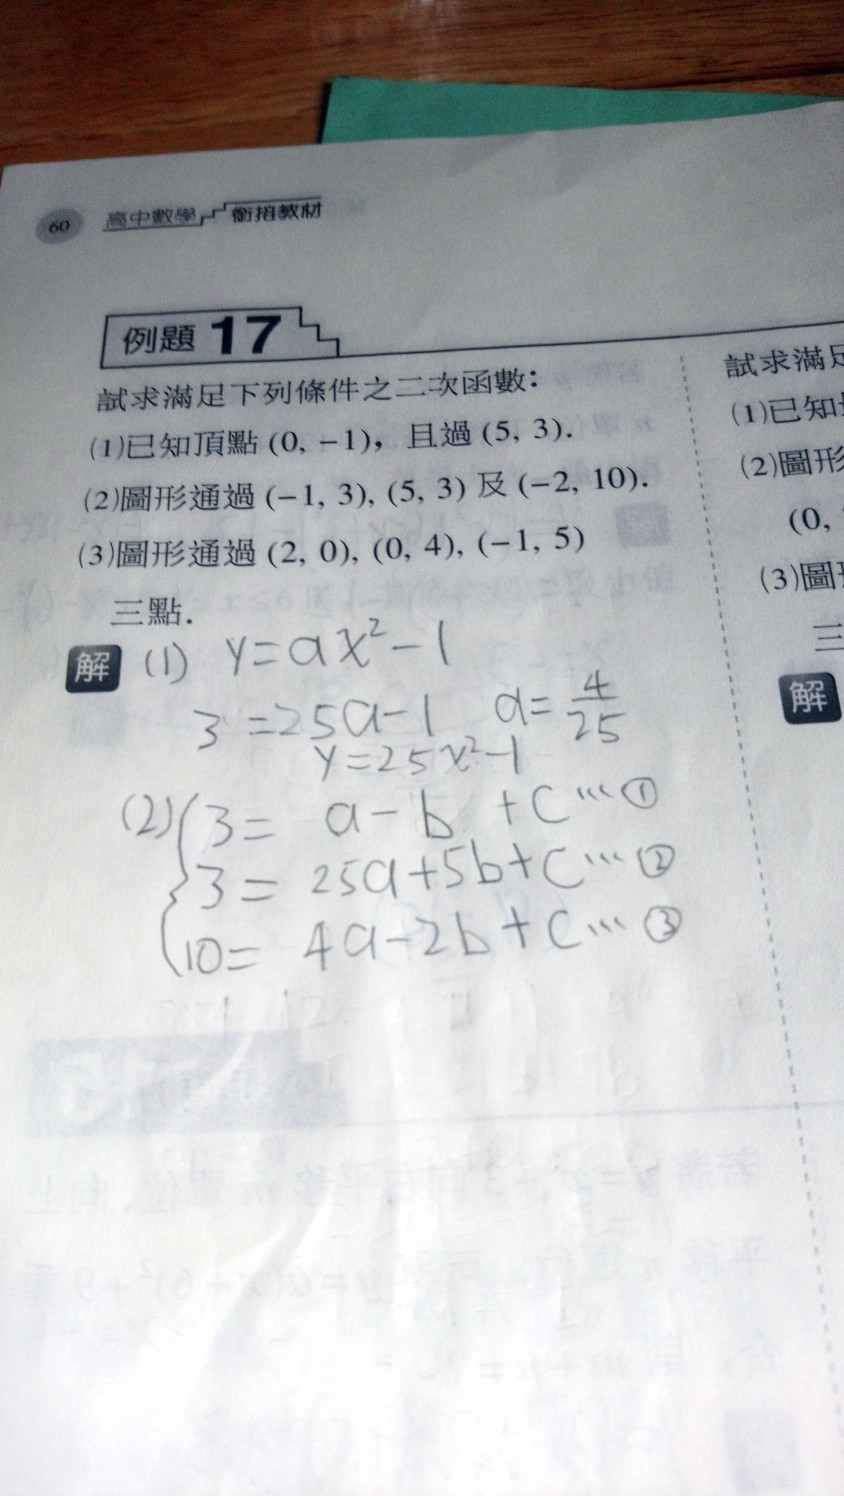 60 高中數學 銜接教材
例題 17
試求滿足下列條件之二次函數：
(1)已知頂點 (0, −1)，且過 (5, 3).
(2)圖形通過 (−1, 3), (5, 3) 及 (−2, 10).
(3)圖形通過 (2, 0), (0, 4), (−1, 5)
三點.
解 (1) y=ax²−1
3=25a−1 a=4/25
y=25x²−1
(2) 3= a−b+c…①
3=25a+5b+c…②
10=4a−2b+c…③
試求滿足
(1)已知
(2)圖形
(0,
(3)圖
三
解